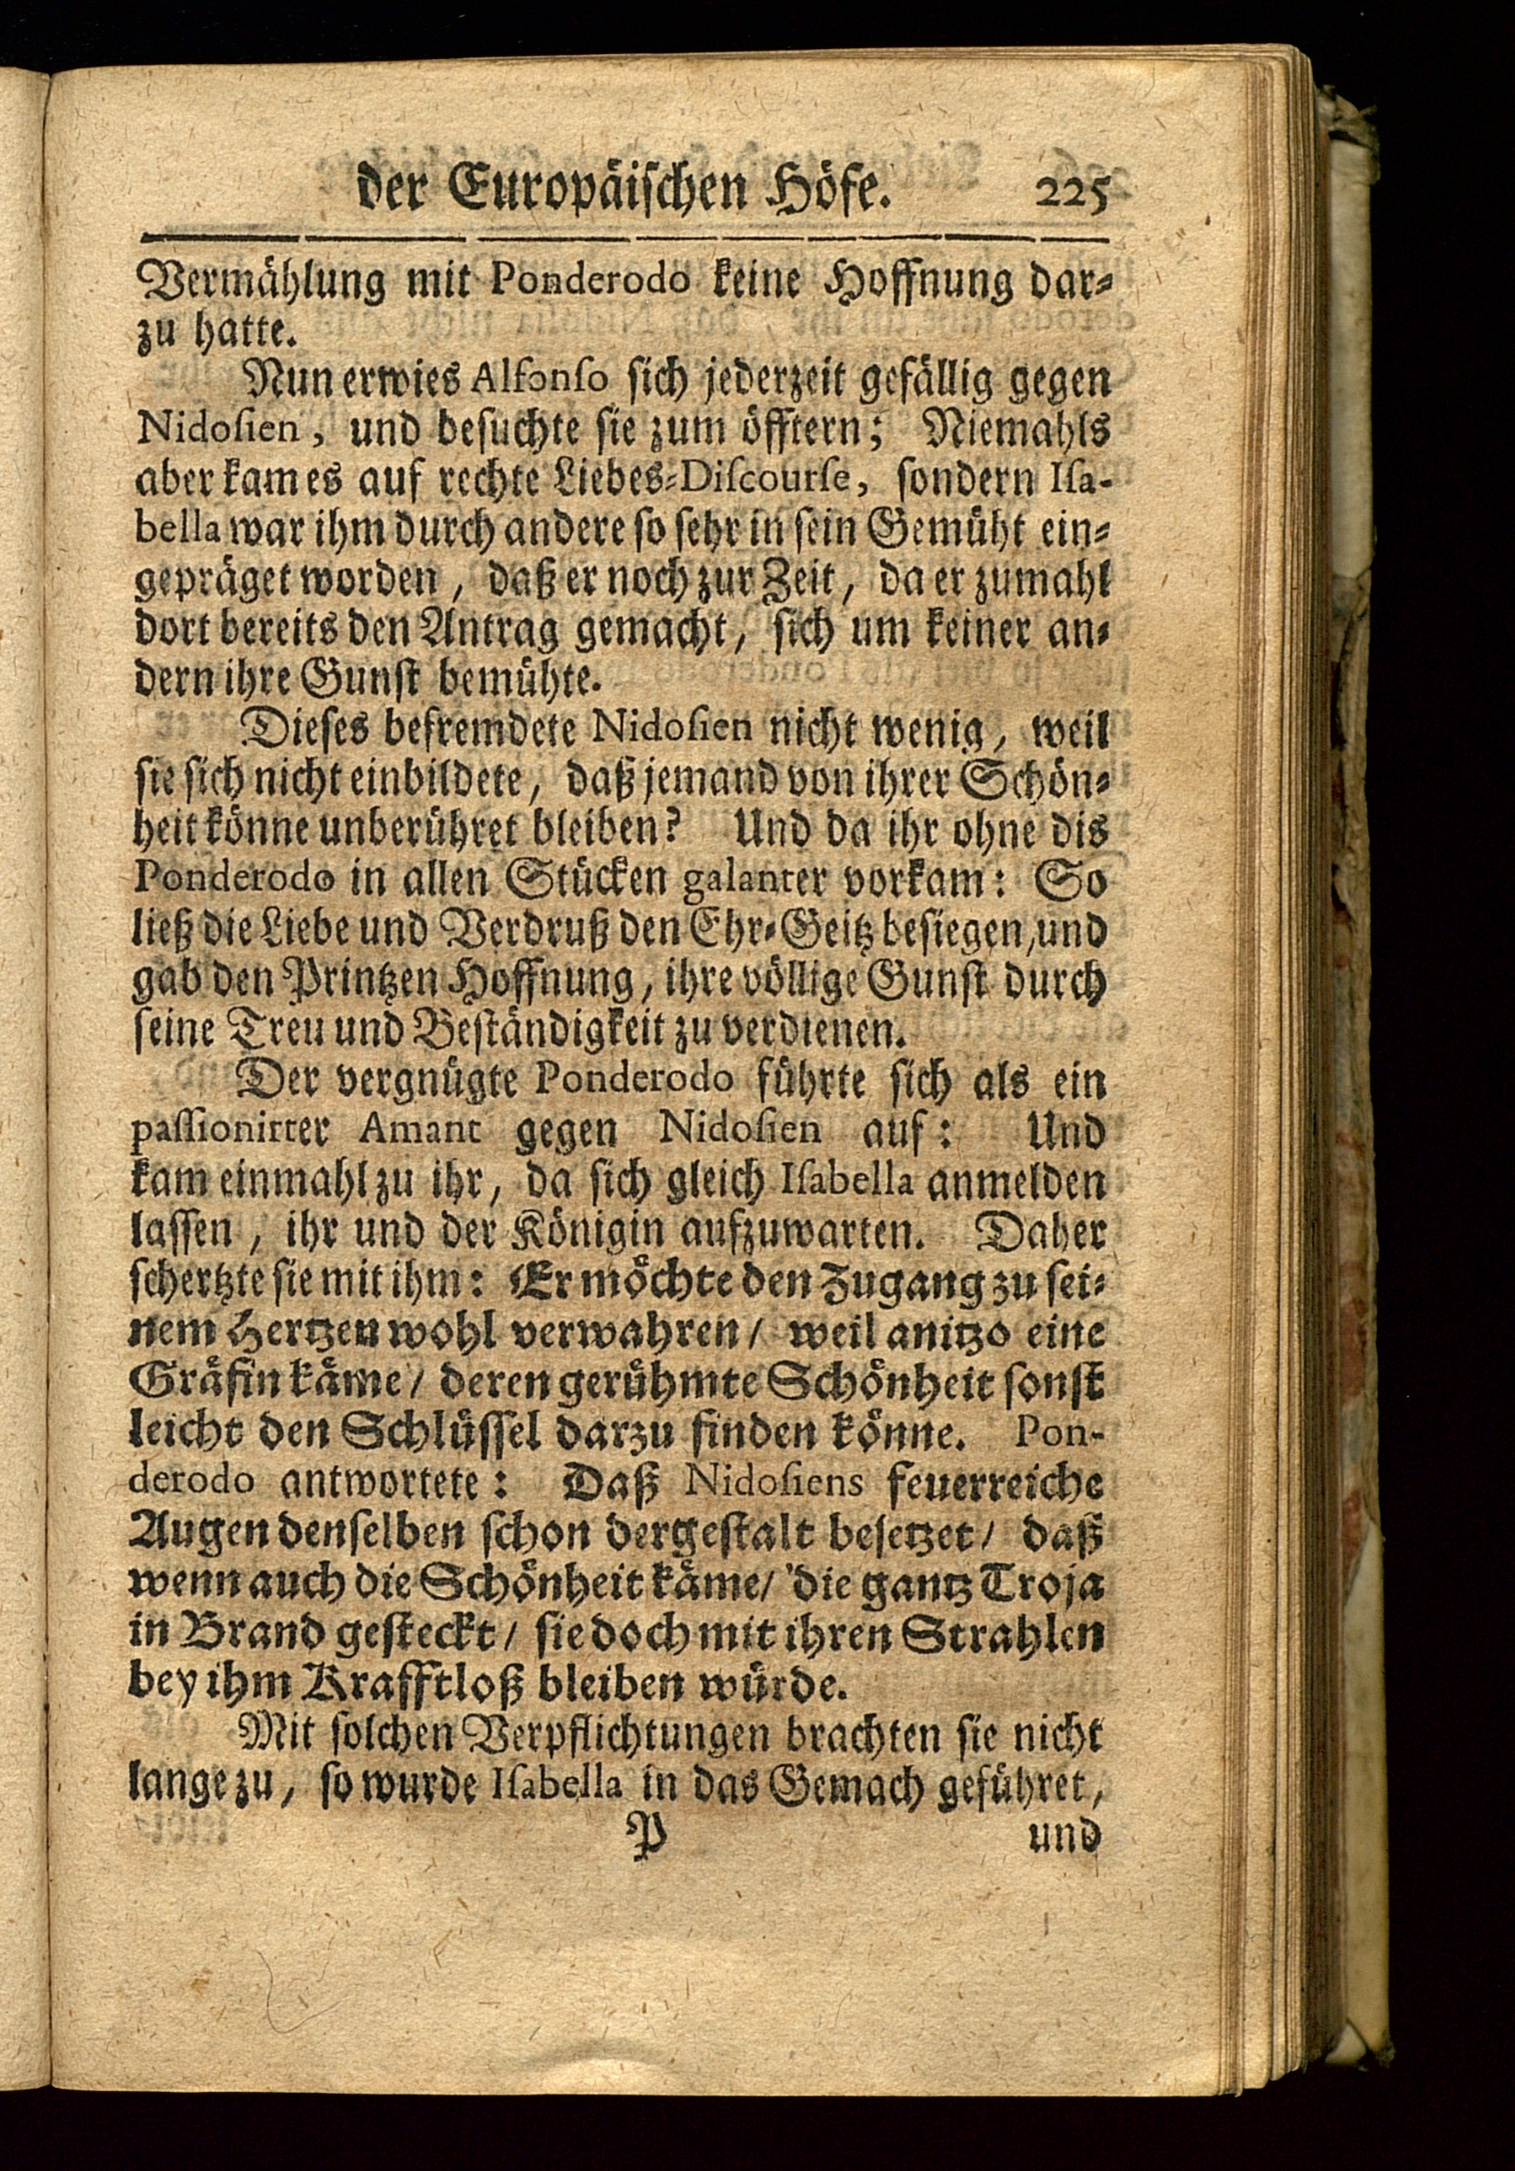 der Europäischen Höfe. 225
Vermählung mit Ponderodo keine Hoffnung dar-
zu hatte.
Nun erwies Alfonso sich jederzeit gefällig gegen
Nidosien, und besuchte sie zum öfftern; Niemahls
aber kam es auf rechte Liebes-Discourse, sondern Isa-
bella war ihm durch andere so sehr in sein Gemüht ein-
gepräget worden, daß er noch zur Zeit, da er zumahl
dort bereits den Antrag gemacht, sich um keiner an-
dern ihre Gunst bemühte.
Dieses befremdete Nidosien nicht wenig, weil
sie sich nicht einbildete, daß jemand von ihrer Schön-
heit könne unberühret bleiben? Und da ihr ohne dis
Ponderodo in allen Stücken galanter vorkam: So
ließ die Liebe und Verdruß den Ehr-Geitz besiegen, und
gab den Printzen Hoffnung, ihre völlige Gunst durch
seine Treu und Beständigkeit zu verdienen.
Der vergnügte Ponderodo führte sich als ein
passionirter Amant gegen Nidosien auf: Und
kam einmahl zu ihr, da sich gleich Isabella anmelden
lassen, ihr und der Königin aufzuwarten. Daher
schertzte sie mit ihm: Er möchte den Zugang zu sei-
nem Hertzen wohl verwahren/ weil anitzo eine
Gräfin käme/ deren gerühmte Schönheit sonst
leicht den Schlüssel darzu finden könne. Pon-
derodo antwortete: Daß Nidosiens feuerreiche
Augen denselben schon dergestalt besetzet/ daß
wenn auch die Schönheit käme/ die gantz Troja
in Brand gesteckt/ sie doch mit ihren Strahlen
bey ihm Krafftloß bleiben würde.
Mit solchen Verpflichtungen brachten sie nicht
lange zu, so wurde Isabella in das Gemach geführet,
P und